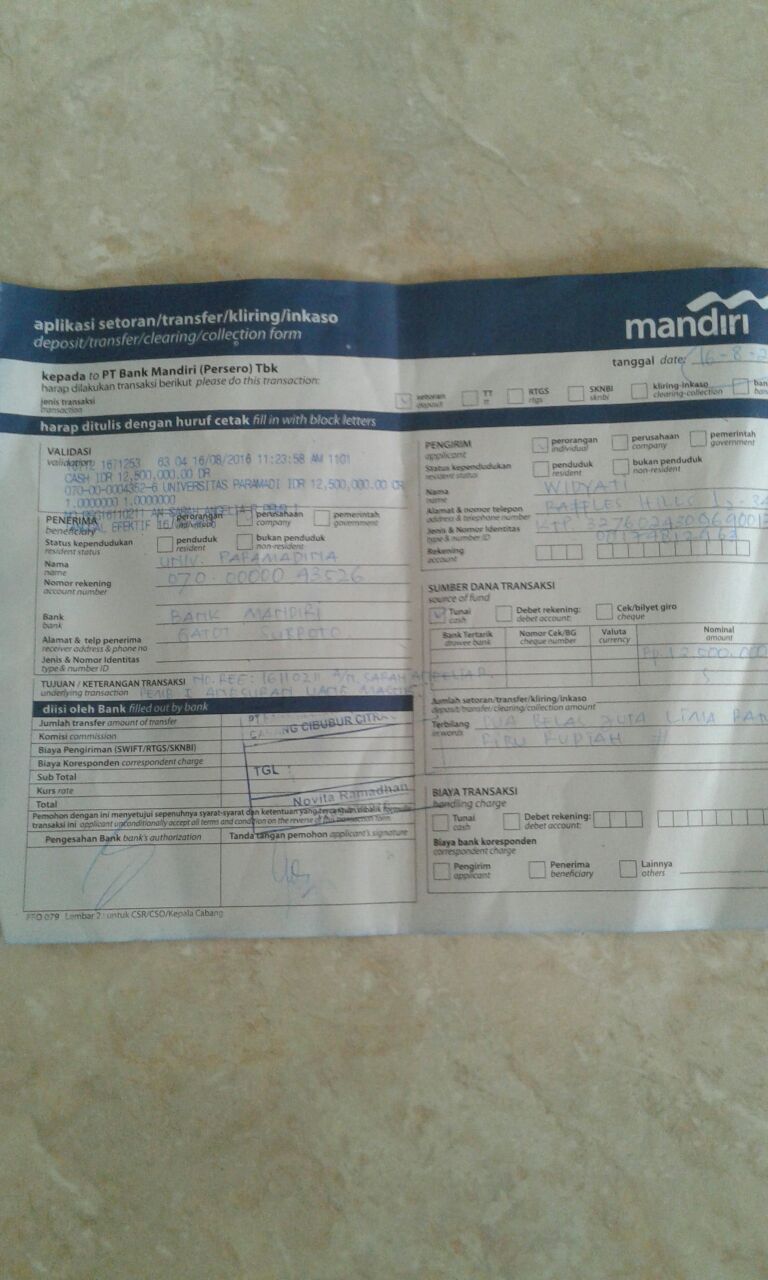 aplikasi setoran/transfer/kliring/inkaso
deposit/transfer/clearing/collection form
mandırı
kepada to PT Bank Mandiri (Persero) Tbk
harap dilakukan transaksi berikut please do this transaction:
tanggal date: 16-8-2
jenis transaksi
transaction
setoran
deposit
TT
tt
RTGS
rtgs
SKNBI
sknbi
kliring-inkaso
clearing-collection
ban
harap ditulis dengan huruf cetak fill in with block letters
VALIDASI
validation
1671253 63 04 16/08/2016 11:23:58 AM 1101
CASH IDR 12,500,000.00 DR
070-00-0004352-6 UNIVERSITAS PARAMADI IDR 12,500,000.00 CR
1.0000000 1.0000000
PENERIMA
beneficiary
perorangan
individual
perusahaan
company
pemerintah
government
Status kependudukan
resident status
penduduk
resident
bukan penduduk
non-resident
Nama
name
UNIV. PARAMADINA
Nomor rekening
account number
070.00000 43526
Bank
bank
BANK MANDIRI
GATOT SUBROTO
Alamat & telp penerima
receiver address & phone no
Jenis & Nomor Identitas
type & number ID
TUJUAN / KETERANGAN TRANSAKSI
underlying transaction
NO. REF: 16110211 A/n. SARAH ANGELIA R.
PEMB I ANGSURAN UANG MASUK
diisi oleh Bank filled out by bank
Jumlah transfer amount of transfer
Komisi commission
Biaya Pengiriman (SWIFT/RTGS/SKNBI)
Biaya Koresponden correspondent charge
Sub Total
Kurs rate
Total
CABANG CIBUBUR CITRA
TGL :
Novita Ramadhan
Pemohon dengan ini menyetujui sepenuhnya syarat-syarat dan ketentuan yang tercantum dibalik formulir
transaksi ini applicant unconditionally accept all terms and condition on the reverse of this transaction form
Pengesahan Bank bank's authorization
Tanda tangan pemohon applicant's signature
FFO 079 Lembar 2 : untuk CSR/CSO/Kepala Cabang
PENGIRIM
applicant
perorangan
individual
perusahaan
company
pemerintah
government
Status kependudukan
resident status
penduduk
resident
bukan penduduk
non-resident
Nama
name
WIDYATI
Alamat & nomor telepon
address & telephone number
RAFFLES HILLS
Jenis & Nomor Identitas
type & number ID
KTP
Rekening
account
SUMBER DANA TRANSAKSI
source of fund
Tunai
cash
Debet rekening:
debet account:
Cek/bilyet giro
cheque
Bank Tertarik
drawee bank
Nomor Cek/BG
cheque number
Valuta
currency
Nominal
amount
Rp 12.500.000
Jumlah setoran/transfer/kliring/inkaso
deposit/transfer/clearing/collection amount
Terbilang
in words
DUA BELAS JUTA LIMA RATUS
RIBU RUPIAH #
BIAYA TRANSAKSI
handling charge
Tunai
cash
Debet rekening:
debet account:
Biaya bank koresponden
correspondent charge
Pengirim
applicant
Penerima
beneficiary
Lainnya
others